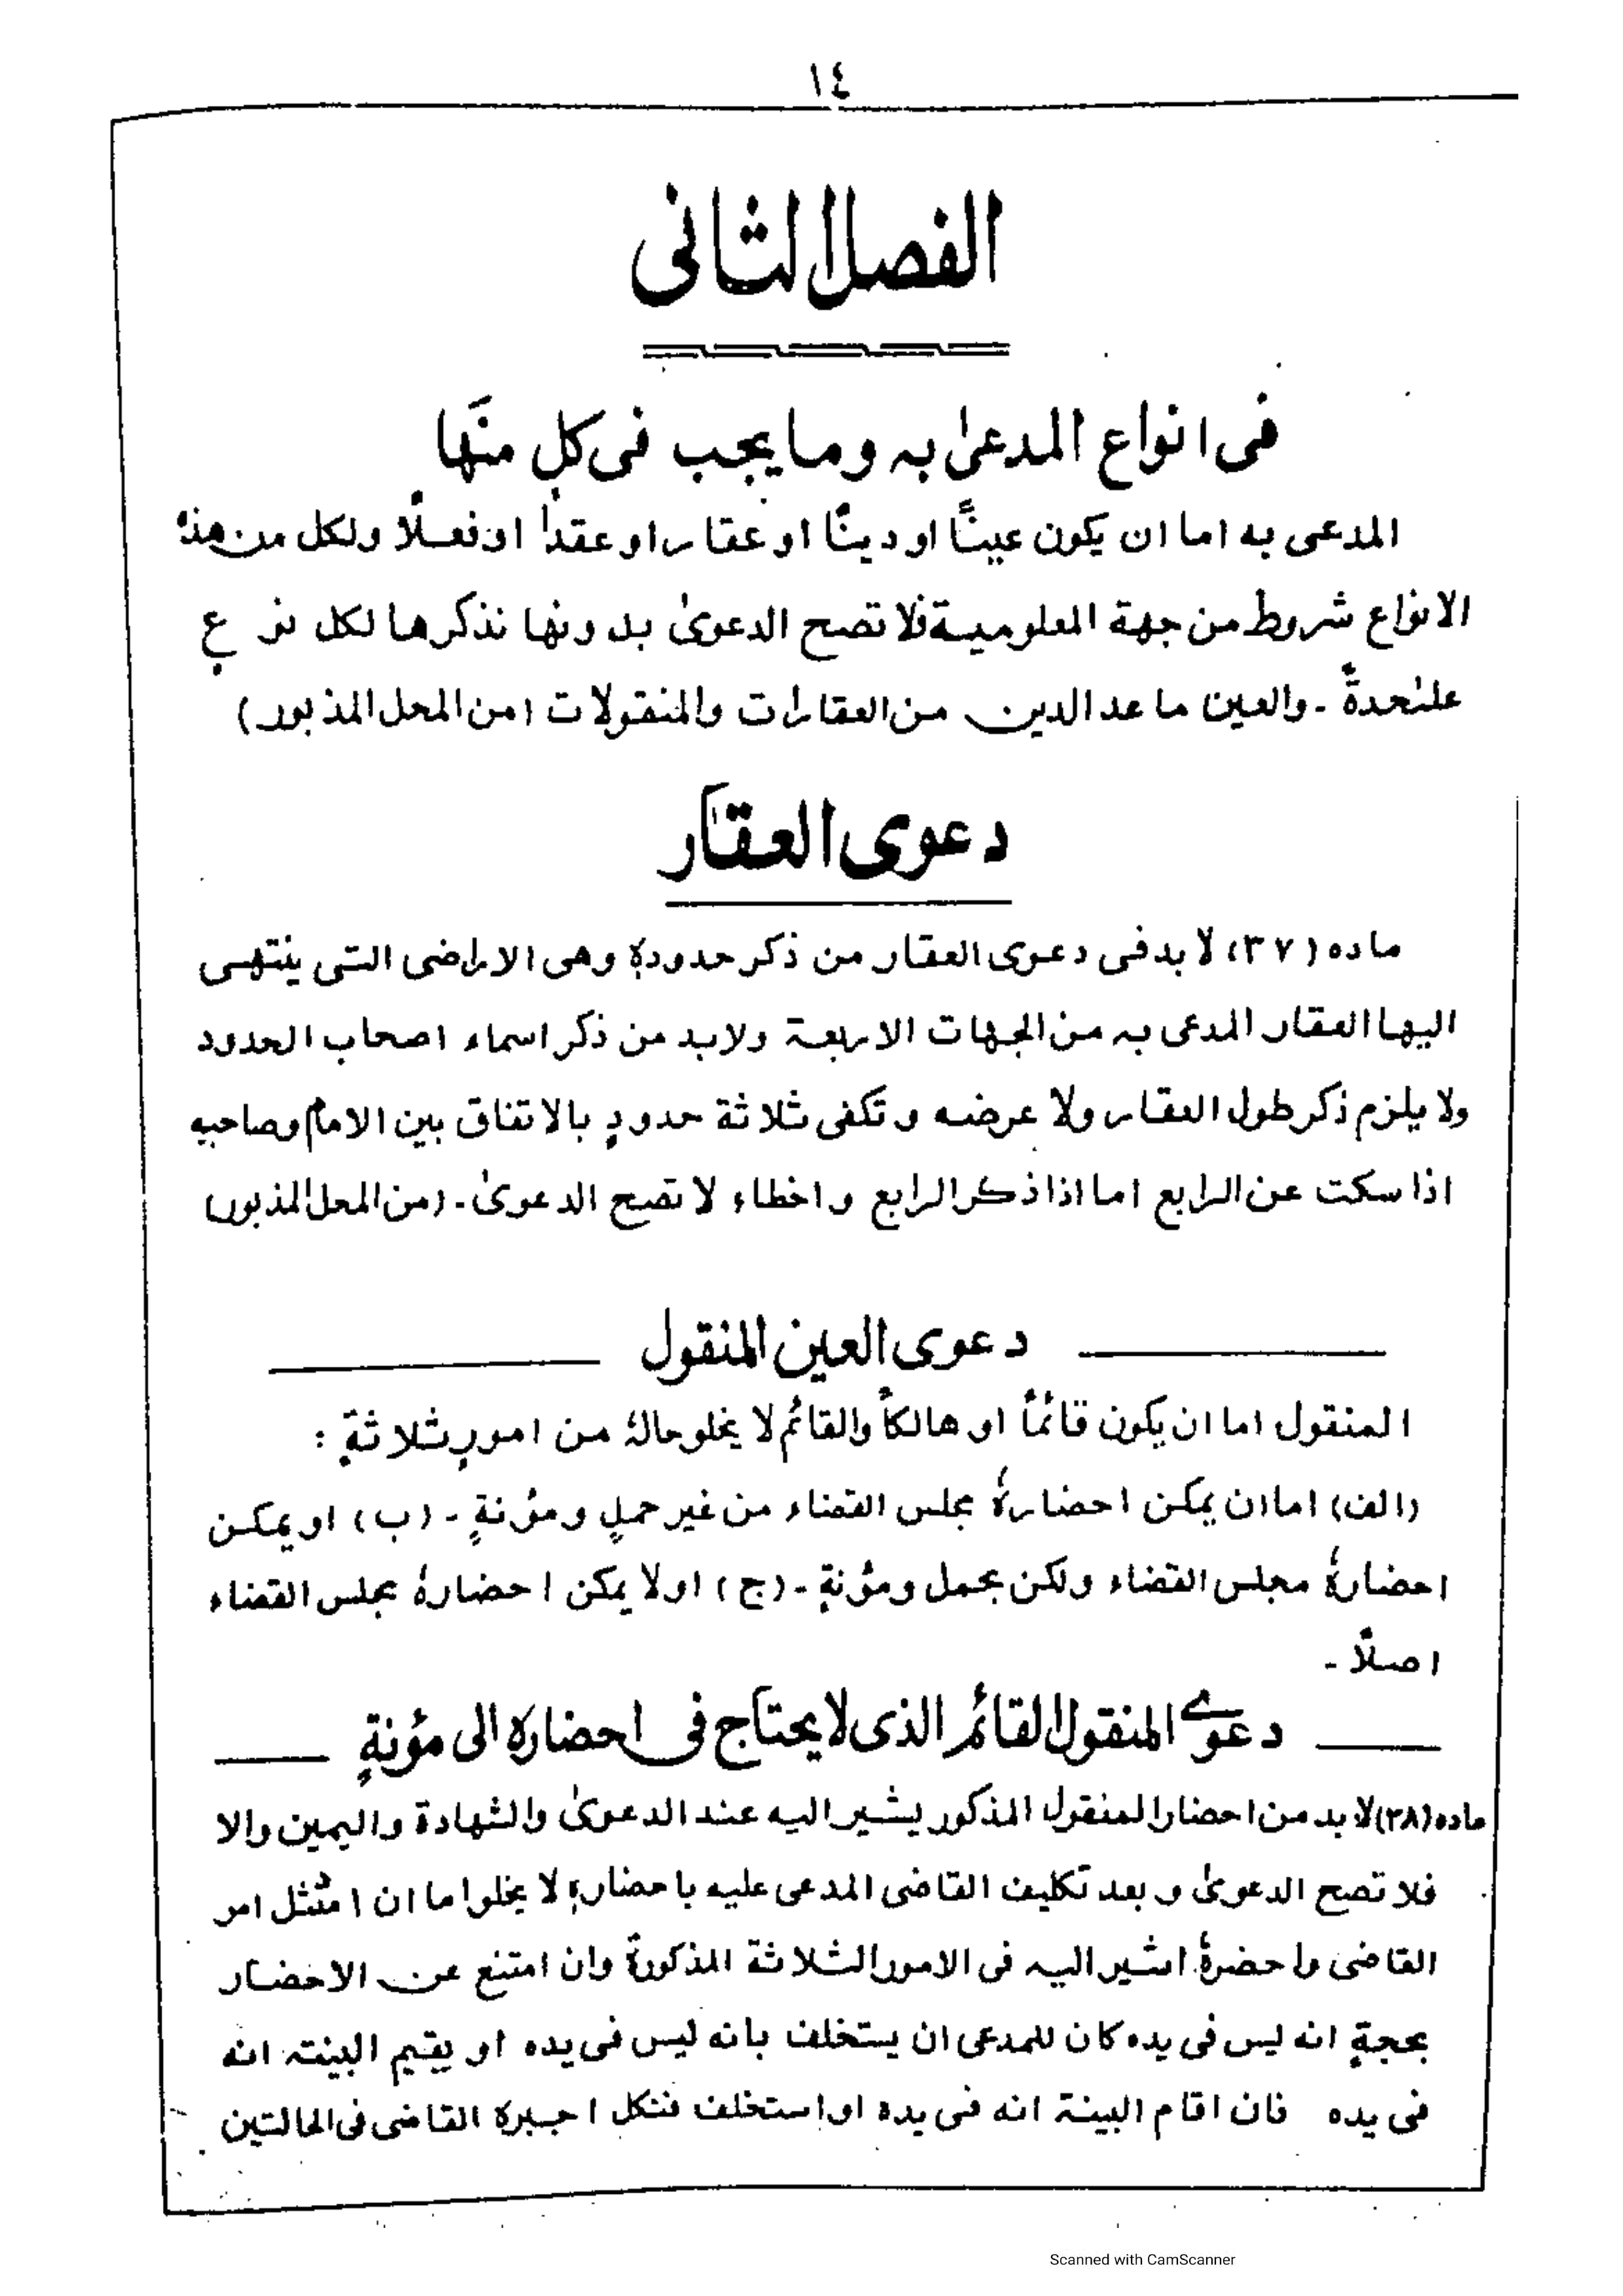 ١٤
الفصل الثانى
فى انواع المدعىٰ به وما يجب فى كل منها
المدعى به اما ان يكون عينًا او دينًا او عقارا او عقدًا او فعلًا ولكل من هذه
الانواع شروط من جهة المعلومية فلا تصح الدعوىٰ بدونها نذكرها لكل نوع
علٰحدةً ـ والعين ما عد الدين من العقارات والمنقولات (من المحل المذبور)
دعوى العقار
ماده (٣٧) لا بد فى دعوى العقار من ذكر حدودهٖ وهى الاراضى التى ينتهى
اليها العقار المدعى به من الجهات الاربعة ولا بد من ذكر اسماء اصحاب الحدود
ولا يلزم ذكر طول العقار ولا عرضه و تكفى ثلاثة حدودٍ بالاتفاق بين الامام وصاحبيه
اذا سكت عن الرابع اما اذا ذكر الرابع و اخطاء لا تصح الدعوىٰ ـ (من المحل المذبور)
دعوى العين المنقول
المنقول اما ان يكون قائمًا او هالكًا والقائم لا يخلو حالهٗ من امورٍ ثلاثةٍ :
(الف) اما ان يمكن احضارهٗ مجلس القضاء من غير حملٍ و مؤنةٍ ـ (ب) او يمكن
احضارهٗ مجلس القضاء ولكن بحمل ومؤنةٍ ـ (ج) او لا يمكن احضارهٗ مجلس القضاء
اصلًا ـ
دعوے المنقول القائم الذى لا يحتاج فى احضاره الى مؤنةٍ
ماده (٣٨) لا بد من احضار المنقول المذكور يشير اليه عند الدعوىٰ والشهادة واليمين والا
فلا تصح الدعوىٰ و بعد تكليف القاضى المدعى عليه باحضارهٖ لا يخلوا ما ان امتثل امر
القاضى واحضرهٗ اشير اليه فى الامور الثلاثة المذكورةً وان امتنع عن الاحضار
بحجةٍ انه ليس فى يده كان للمدعى ان يستخلف بانه ليس فى يده او يقيم البينته انه
فى يده فان اقام البينة انه فى يده او استخلف فنكل اجبره القاضى فى الحالتين
Scanned with CamScanner